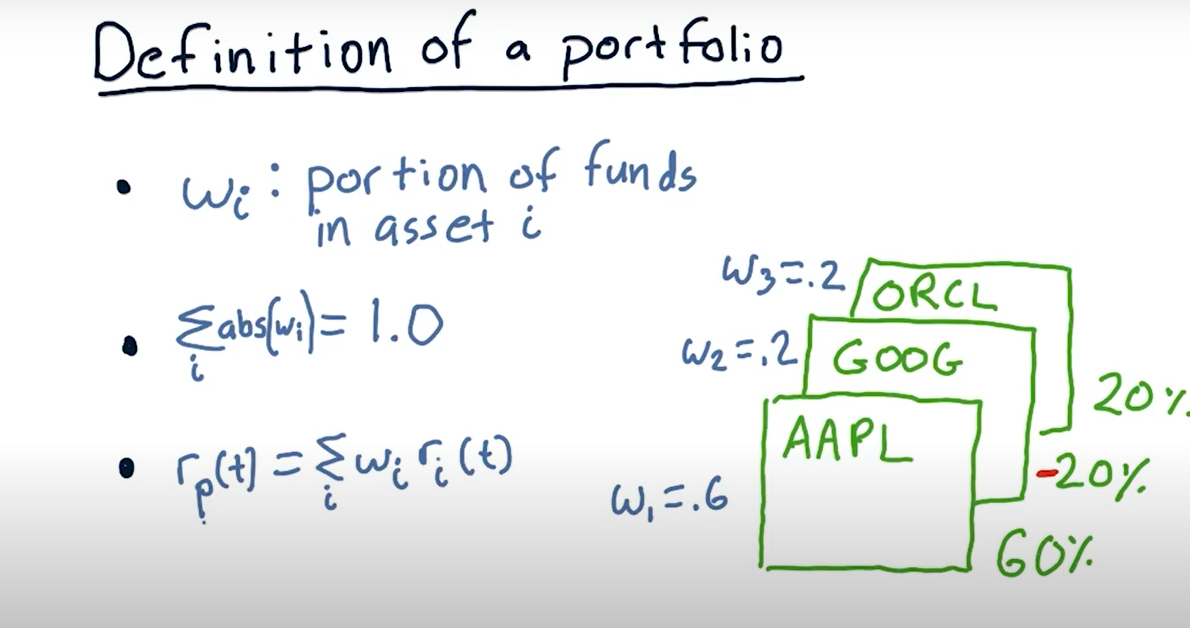 Definition of a portfolio
• wi : portion of funds
in asset i
• Σi abs(wi) = 1.0
• rp(t) = Σi wi ri(t)
w3=.2 ORCL
w2=.2 GOOG
20%
AAPL
-20%
w1=.6
60%